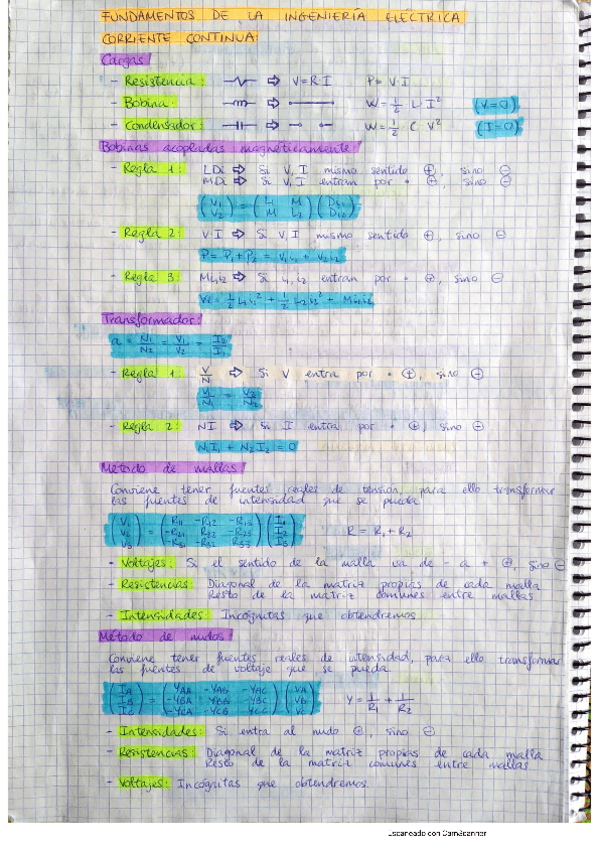 FUNDAMENTOS DE LA INGENIERÍA ELÉCTRICA
CORRIENTE CONTINUA:
Cargas
- Resistencia: ⇨ V=R·I P=V·I
- Bobina: ⇨ W=1/2 L·I² (V=0)
- Condensador: ⇨ W=1/2 C V² (I=0)
Bobinas acopladas magnéticamente
- Regla 1: LDi ⇨ Si V, I mismo sentido ⊕, sino ⊖
MDi ⇨ Si V, I entran por • ⊕, sino ⊖
(V1 V2) = (L1 M M L2) (Di1 Di2)
- Regla 2: V·I ⇨ Si V, I mismo sentido ⊕, sino ⊖
P = P1 + P2 = V1 i1 + V2 i2
- Regla 3: Mi1i2 ⇨ Si i1, i2 entran por • ⊕, sino ⊖
= 1/2 L1 i1² + 1/2 L2 i2² + Mi1i2
Transformador
a = N1/N2 = V1/V2 = I2/I1
- Regla 1: V/N ⇨ Si V entra por • ⊕, sino ⊖
V1/N1 = V2/N2
- Regla 2: NI ⇨ Si I entra por • ⊕, sino ⊖
N1I1 + N2I2 = 0
Método de mallas
Conviene tener fuentes reales de tensión, para ello transformar
las fuentes de intensidad que se pueda.
(V1 V2 V3) = (R11 -R12 -R13 -R21 R22 -R23 -R31 -R32 R33) (I1 I2 I3) R = R1 + R2
- Voltajes: Si el sentido de la malla va de - a + ⊕, sino ⊖
- Resistencias: Diagonal de la matriz propias de cada malla
Resto de la matriz comunes entre mallas
- Intensidades: Incógnitas que obtendremos
Método de nudos
Conviene tener fuentes reales de intensidad, para ello transformar
las fuentes de voltaje que se pueda.
(IA IB IC) = (YAA -YAB -YAC -YBA YBB -YBC -YCA -YCB YCC) (VA VB VC) Y = 1/R1 + 1/R2
- Intensidades: Si entra al nudo ⊕, sino ⊖
- Resistencias: Diagonal de la matriz propias de cada malla
Resto de la matriz comunes entre mallas
- Voltajes: Incógnitas que obtendremos.
Escaneado con CamScanner